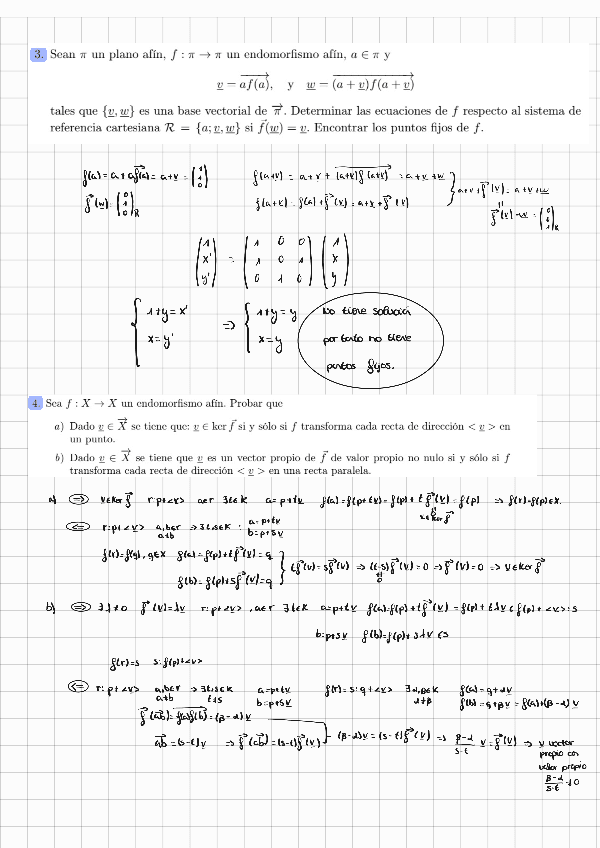 3. Sean π un plano afín, f : π → π un endomorfismo afín, a ∈ π y
v = af(a), y w = (a + v)f(a + v)
tales que {v, w} es una base vectorial de π. Determinar las ecuaciones de f respecto al sistema de
referencia cartesiana R = {a; v, w} si f(w) = v. Encontrar los puntos fijos de f.
f(a) = a + af(a) = a+v = (1 1 0)
f(a+v) = a+v + (a+v)f(a+v) = a+v+w
f(w) = (0 1 0)R
f(a+v) = f(a) + f(v) = a+v+f(v)
} a+v+f(v) = a+v+w
f(v) = w = (0 0 1)R
(1 x' y') = (1 0 0 / 1 0 1 / 0 1 0) (1 x y)
{ 1+y = x' ⇒ { 1+y = y
x = y' x = y
No tiene solución
por tanto no tiene
puntos fijos.
4. Sea f : X → X un endomorfismo afín. Probar que
a) Dado v ∈ X se tiene que: v ∈ ker f si y sólo si f transforma cada recta de dirección < v > en
un punto.
b) Dado v ∈ X se tiene que v es un vector propio de f de valor propio no nulo si y sólo si f
transforma cada recta de dirección < v > en una recta paralela.
a) ⇒ v∈Ker f r: p+<v> a∈r ∃t∈K a = p+tv f(a) = f(p+tv) = f(p) + t f(v) = f(p) ⇒ f(r) = f(p) ∈ X.
v∈Ker f
⇐ r: p+<v> a,b∈r ⇒ ∃t,s∈K : a = p+tv
b = p+sv
f(r) = {q}, q∈X f(a) = f(p) + t f(v) = q
f(b) = f(p) + s f(v) = q
} t f(v) = s f(v) ⇒ (t-s) f(v) = 0 ⇒ f(v) = 0 ⇒ v∈Ker f
b) ⇒ ∃λ≠0 f(v) = λv r: p+<v>, a∈r ∃t∈K a = p+tv f(a) = f(p) + t f(v) = f(p) + tλv ∈ f(p) + <v> : s
b: p+sv f(b) = f(p) + sλv ∈ s
f(r) = s s: f(p)+<v>
⇐ r: p+<v> a,b∈r ⇒ ∃t,s∈K a = p+tv f(r) = s: q+<v> ∃α,β∈K f(a) = q+αv
a≠b t≠s b = p+sv α≠β f(b) = q+βv = f(a)+(β-α)v
f(ab) = f(a)f(b) = (β-α)v
ab = (s-t)v ⇒ f(ab) = (s-t) f(v)
} (β-α)v = (s-t) f(v) ⇒ β-α / s-t v = f(v) ⇒ v vector
propio con
valor propio
β-α / s-t ≠ 0